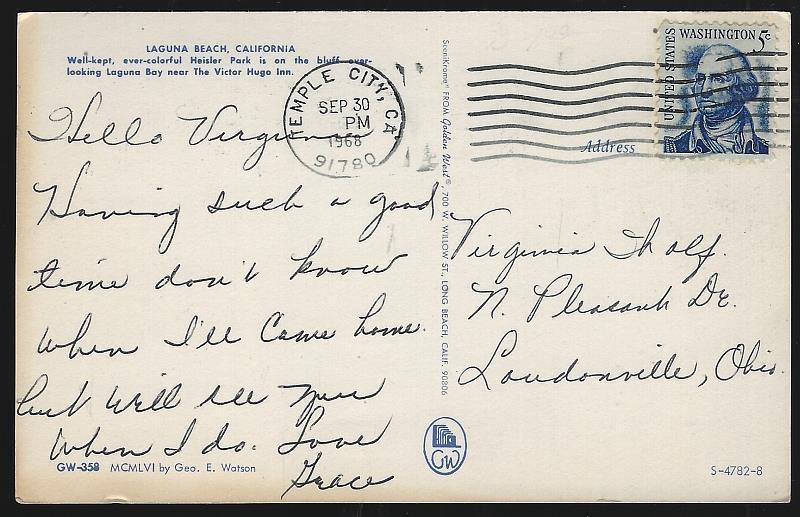 LAGUNA BEACH, CALIFORNIA
Well-kept, ever-colorful Heisler Park is on the bluff over-
looking Laguna Bay near The Victor Hugo Inn.
TEMPLE CITY, CA
SEP 30
PM
1968
91780
UNITED STATES
WASHINGTON 5c
Address
Hello Virginia
Having such a good
time don't know
when I'll come home.
but will see you
when I do. Love
Grace
SceniKrome® FROM Golden West®, 700 W. WILLOW ST., LONG BEACH, CALIF. 90806
Virginia
N. Pleasant Dr.
Loudonville, Ohio.
GW
GW-358 MCMLVI by Geo. E. Watson
S-4782-8